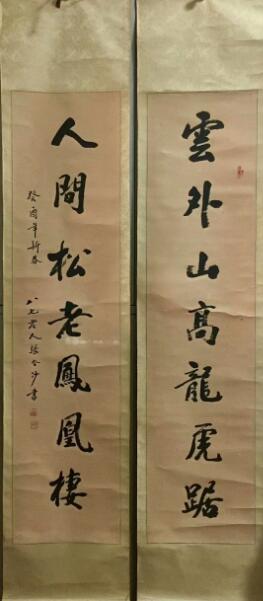 雲外山高龍虎踞
人間松老鳳凰棲
癸酉年新春
八七老人張公沙書